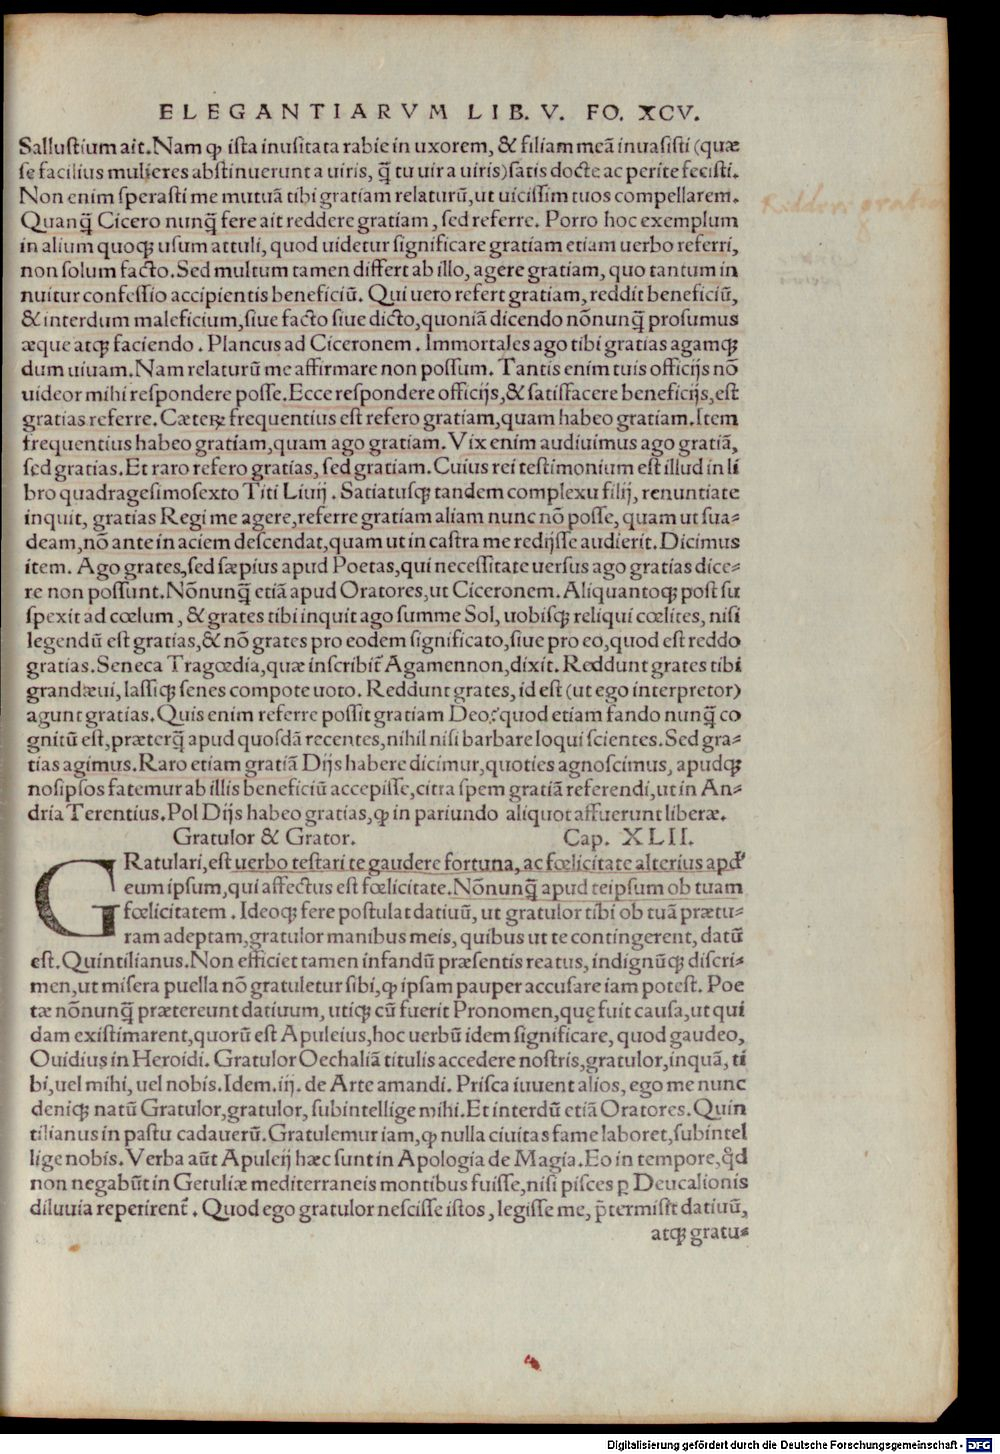 ELEGANTIARVM LIB. V. FO. XCV.
Sallustium ait. Nam ꝙ ista inusitata rabie in uxorem, & filiam meā inuasisti (quæ
se facilius mulieres abstinuerunt a uiris, q̃ tu uir a uiris) satis docte ac perite fecisti.
Non enim sperasti me mutuā tibi gratiam relaturū, ut uicissim tuos compellarem.
Quanq̃ Cicero nunq̃ fere ait reddere gratiam, sed referre. Porro hoc exemplum
in alium quoqꝫ usum attuli, quod uidetur significare gratiam etiam uerbo referri,
non solum facto. Sed multum tamen differt ab illo, agere gratiam, quo tantum in
nuitur confessio accipientis beneficiū. Qui uero refert gratiam, reddit beneficiū,
& interdum maleficium, siue facto siue dicto, quoniā dicendo nōnunq̃ prosumus
æque atqꝫ faciendo. Plancus ad Ciceronem. Immortales ago tibi gratias agamqꝫ
dum uiuam. Nam relaturū me affirmare non possum. Tantis enim tuis officijs nō
uideor mihi respondere posse. Ecce respondere officijs, & satisfacere beneficijs, est
gratias referre. Cæteꝝ frequentius est refero gratiam, quam habeo gratiam. Item
frequentius habeo gratiam, quam ago gratiam. Vix enim audiuimus ago gratiā,
sed gratias. Et raro refero gratias, sed gratiam. Cuius rei testimonium est illud in li
bro quadragesimosexto Titi Liuij. Satiatusqꝫ tandem complexu filij, renuntiate
inquit, gratias Regi me agere, referre gratiam aliam nunc nō posse, quam ut sua⸗
deam, nō ante in aciem descendat, quam ut in castra me redijsse audierit. Dicimus
item. Ago grates, sed sæpius apud Poetas, qui necessitate uersus ago gratias dice⸗
re non possunt. Nōnunq̃ etiā apud Oratores, ut Ciceronem. Aliquantoqꝫ post su
spexit ad cœlum, & grates tibi inquit ago summe Sol, uobisqꝫ reliqui cœlites, nisi
legendū est gratias, & nō grates pro eodem significato, siue pro eo, quod est reddo
gratias. Seneca Tragœdia, quæ inscribit̃ Agamennon, dixit. Reddunt grates tibi
grandæui, lassiqꝫ senes compote uoto. Reddunt grates, id est (ut ego interpretor)
agunt gratias. Quis enim referre possit gratiam Deo? quod etiam fando nunq̃ co
gnitū est, præterq̃ apud quosdā recentes, nihil nisi barbare loqui scientes. Sed gra⸗
tias agimus. Raro etiam gratiā Dijs habere dicimur, quoties agnoscimus, apudqꝫ
nosipsos fatemur ab illis beneficiū accepisse, citra spem gratiā referendi, ut in An⸗
dria Terentius. Pol Dijs habeo gratias, ꝙ in pariundo aliquot affuerunt liberæ.
Gratulor & Grator. Cap. XLII.
GRatulari, est uerbo testari te gaudere fortuna, ac fœlicitate alterius apd'
eum ipsum, qui affectus est fœlicitate. Nōnunq̃ apud teipsum ob tuam
fœlicitatem. Ideoqꝫ fere postulat datiuū, ut gratulor tibi ob tuā prætu⸗
ram adeptam, gratulor manibus meis, quibus ut te contingerent, datū
est. Quintilianus. Non efficiet tamen infandū præsentis reatus, indignūqꝫ discri⸗
men, ut misera puella nō gratuletur sibi, ꝙ ipsam pauper accusare iam potest. Poe
tæ nōnunq̃ prætereunt datiuum, utiqꝫ cū fuerit Pronomen, quę fuit causa, ut qui
dam existimarent, quorū est Apuleius, hoc uerbū idem significare, quod gaudeo,
Ouidius in Heroidi. Gratulor Oechaliā titulis accedere nostris, gratulor, inquā, ti
bi, uel mihi, uel nobis. Idem. iij. de Arte amandi. Prisca iuuent alios, ego me nunc
deniqꝫ natū Gratulor, gratulor, subintellige mihi. Et interdū etiā Oratores. Quin
tilianus in pastu cadauerū. Gratulemur iam, ꝙ nulla ciuitas fame laboret, subintel
lige nobis. Verba aūt Apuleij hæc sunt in Apologia de Magia. Eo in tempore, qd̃
non negabūt in Getuliæ mediterraneis montibus fuisse, nisi pisces ꝑ Deucalionis
diluuia reperirent̃. Quod ego gratulor nescisse istos, legisse me, p̃termisit datiuū,
atqꝫ gratu⸗
Reddere gratiam
Digitalisierung gefördert durch die Deutsche Forschungsgemeinschaft - DFG